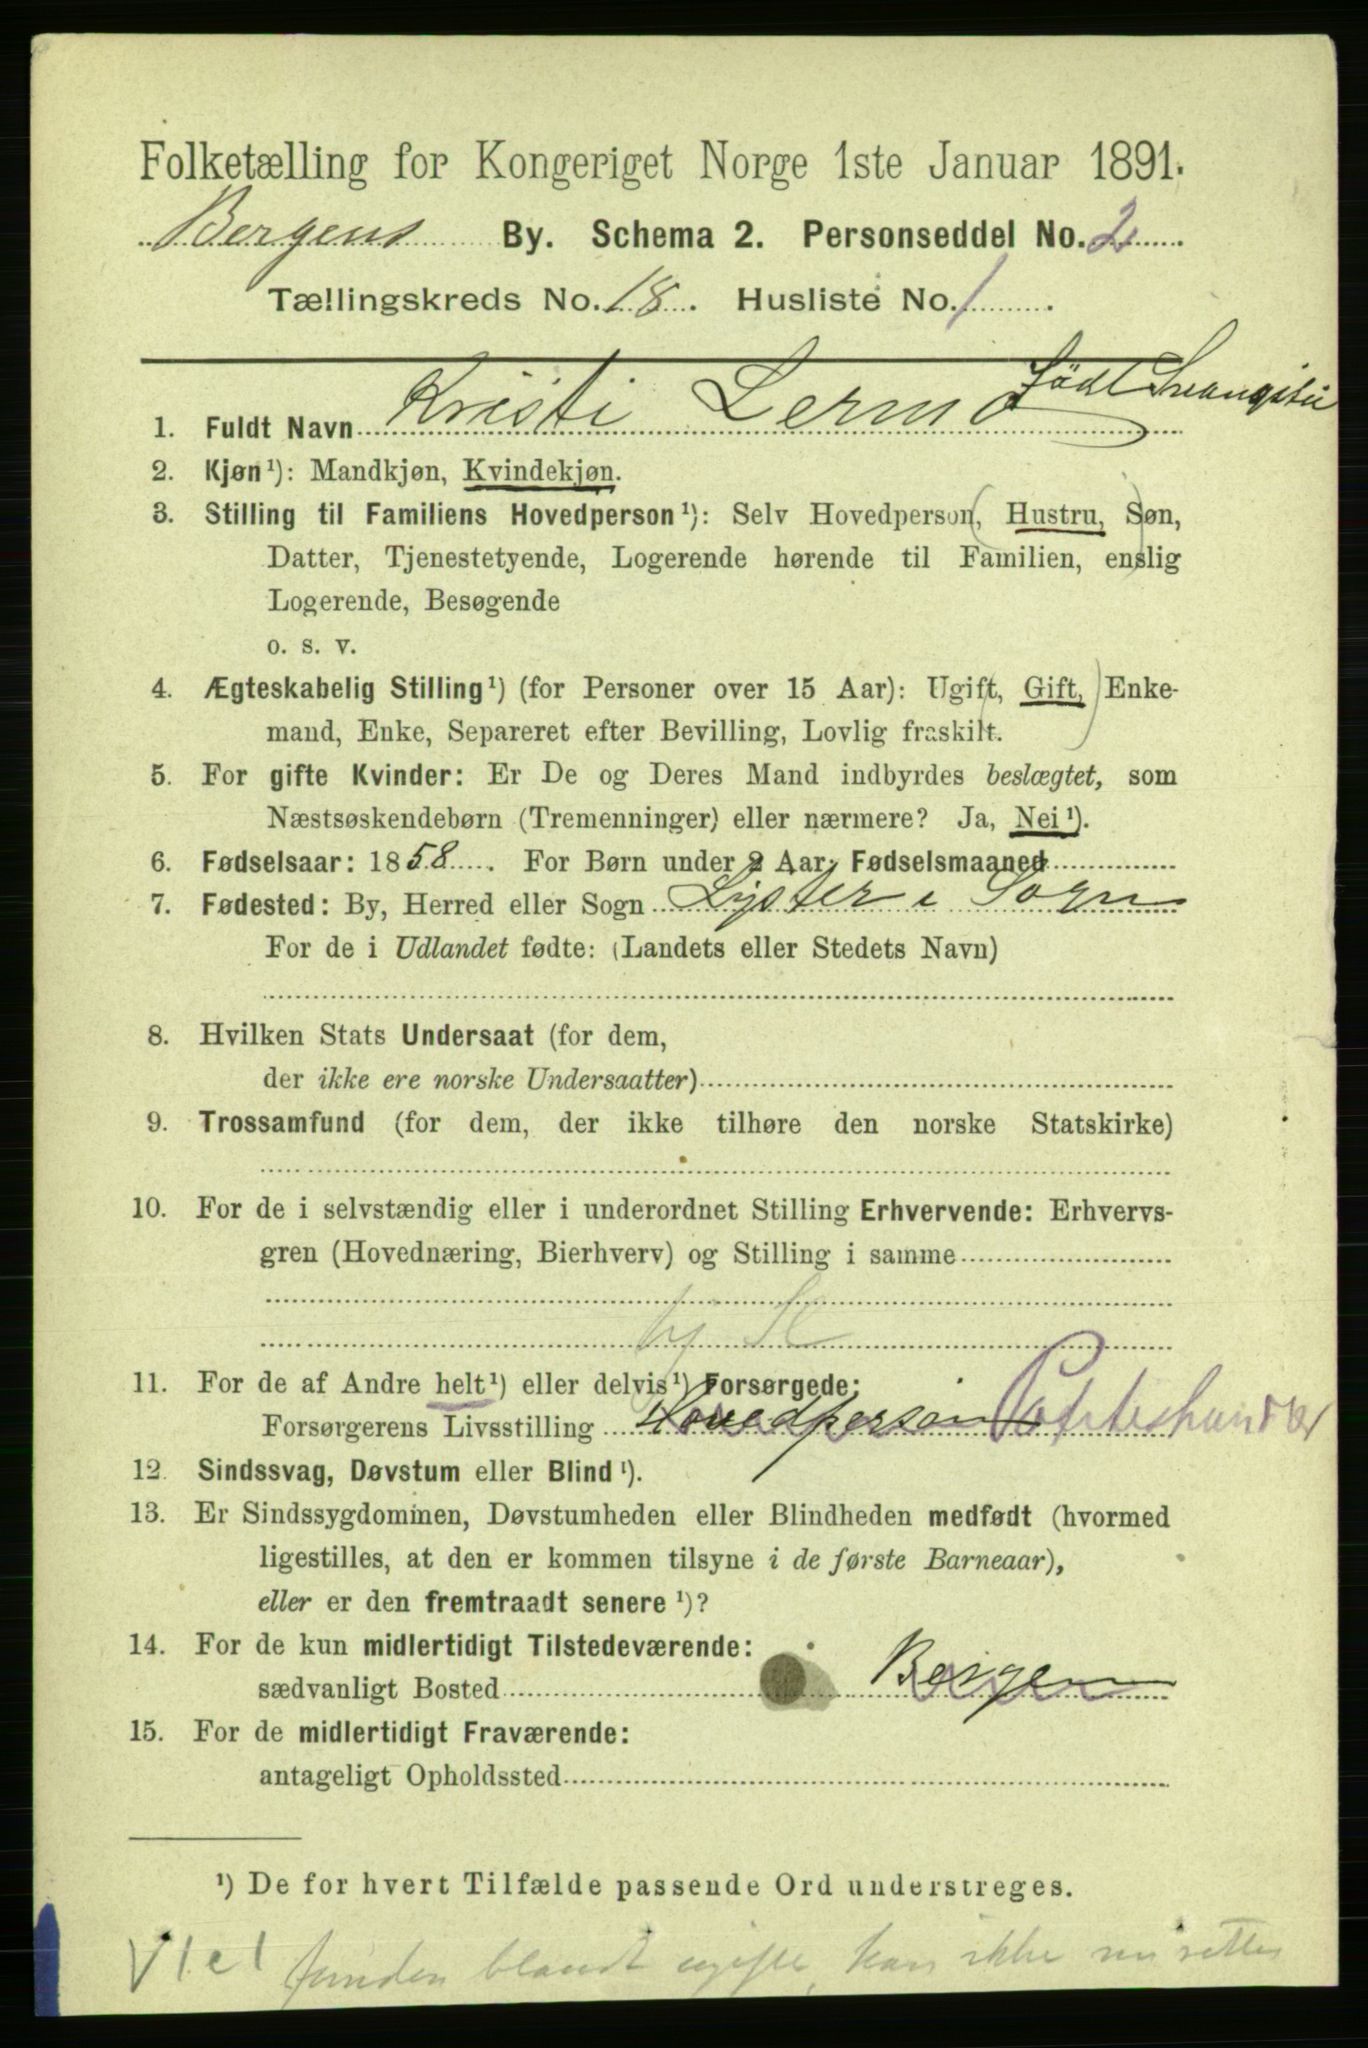 Folketælling for Kongeriget Norge 1ste Januar 1891.
Bergens By. Schema 2. Personseddel No. 2
Tællingskreds No. 18. Husliste No. 1.
1. Fuldt Navn Kristi Lerum født
2. Kjøn¹): Mandkjøn, Kvindekjøn.
3. Stilling til Familiens Hovedperson¹): Selv Hovedperson, Hustru, Søn,
Datter, Tjenestetyende, Logerende hørende til Familien, enslig
Logerende, Besøgende
o. s. v.
4. Ægteskabelig Stilling¹) (for Personer over 15 Aar): Ugift, Gift, Enke-
mand, Enke, Separeret efter Bevilling, Lovlig fraskilt.
5. For gifte Kvinder: Er De og Deres Mand indbyrdes beslægtet, som
Næstsøskendebørn (Tremenninger) eller nærmere? Ja, Nei¹).
6. Fødselsaar: 1858. For Børn under 2 Aar, Fødselsmaaned
7. Fødested: By, Herred eller Sogn Lyster i Sogn
For de i Udlandet fødte: (Landets eller Stedets Navn)
8. Hvilken Stats Undersaat (for dem,
der ikke ere norske Undersaatter)
9. Trossamfund (for dem, der ikke tilhøre den norske Statskirke)
10. For de i selvstændig eller i underordnet Stilling Erhvervende: Erhvervs-
gren (Hovednæring, Bierhverv) og Stilling i samme
11. For de af Andre helt¹) eller delvis¹) Forsørgede:
Forsørgerens Livsstilling Hovedperson
12. Sindssvag, Døvstum eller Blind¹).
13. Er Sindssygdommen, Døvstumheden eller Blindheden medfødt (hvormed
ligestilles, at den er kommen tilsyne i de første Barneaar),
eller er den fremtraadt senere¹)?
14. For de kun midlertidigt Tilstedeværende:
sædvanligt Bosted Bergen
15. For de midlertidigt Fraværende:
antageligt Opholdssted
¹) De for hvert Tilfælde passende Ord understreges.
funden blandt ugifte, kan ikke nu rettes